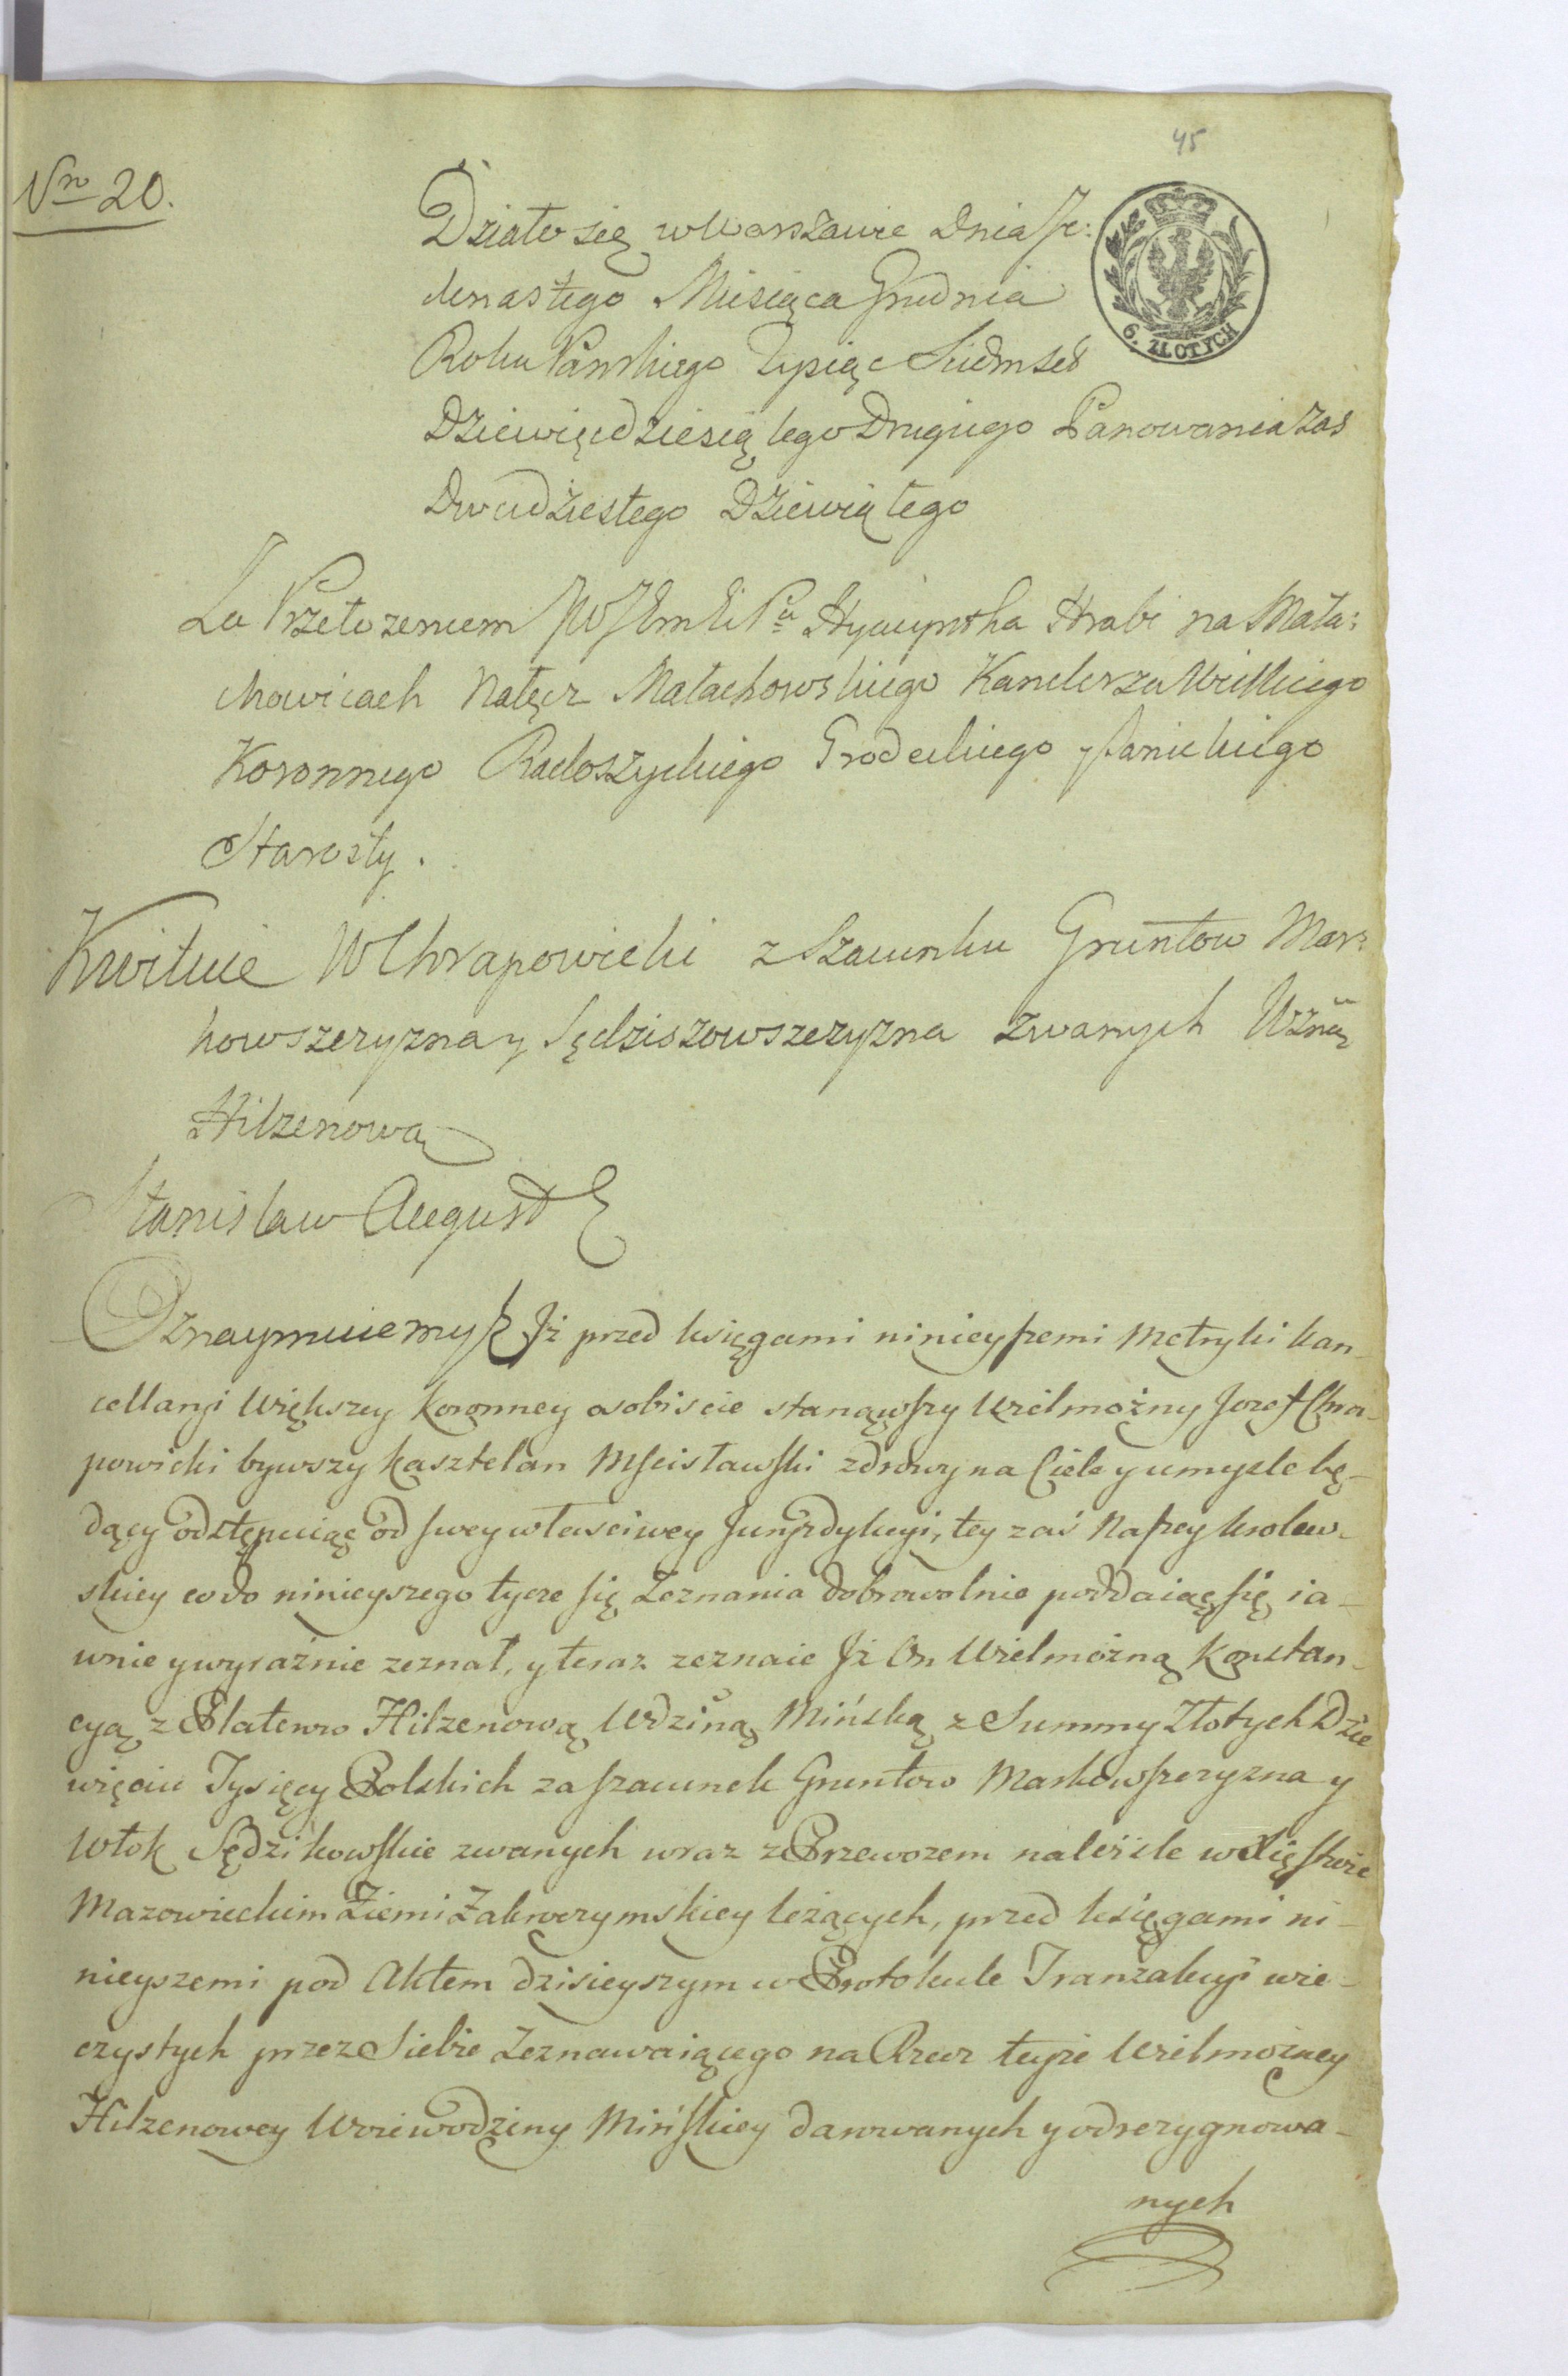 45
Nro 20.
Działo się w Warszawie Dnia Je:
denastego Miesiąca Grudnia
6. ZŁOTYCH
Roku Pańskiego Tysiąc Siedmset
Dziewięćdziesiątego Drugiego Panowania zas
Dwudziestego Dziewiątego
Za Przełożeniem JW JEmCi Pa Hyacyntha Hrabi na Mała:
chowicach Nałęcz Małachowskiego Kanclerza Wielkiego
Koronnego Radoszyckiego Grodeckiego y Sanickiego
Starosty.
Kwituie W Chrapowicki z Szacunku Gruntow Mar:
kowszczyzna y Sędziszowszczyzna zwanych Wżną
Hilzenową
Stanisław August
Oznaymuiemy Jż przed księgami ninieyszemi Metryki kan-
cellaryi Większey Koronney osobiscie stanąwszy Wielmożny Jozef Chra-
powicki bywszy kasztelan Mscisławski zdrowy na Ciele y umysle bę-
dący odstępuiąc od swey własciwey Juryzdykcyi, tey zaś Naszey krolew-
skiey co do ninieyszego tycze się Zeznania dobrowolnie poddaiąc się ia-
wnie y wyraźnie zeznał, y teraz zeznaie Jż On Wielmożną Konstan-
cyą z Platerow Hilzenową Wdziną Mińską z Summy Złotych Dzie
więciu Tysięcy Polskich za szacunek Gruntow Markowszczyzna y
Włok Sędzikowskie zwanych wraz z Przewozem należźle w Xięstwie
Mazowieckim Ziemi Zakroczymskiey leżących, przed księgami ni-
nieyszemi pod Aktem dzisieyszym w Protokule Tranzakcyi wie-
czystych przez Siebie Zeznawaiącego na Rzecz teyże Wielmożney
Hilzenowey Woiewodziny Mińskiey darowanych y odrezygnowa-
nych